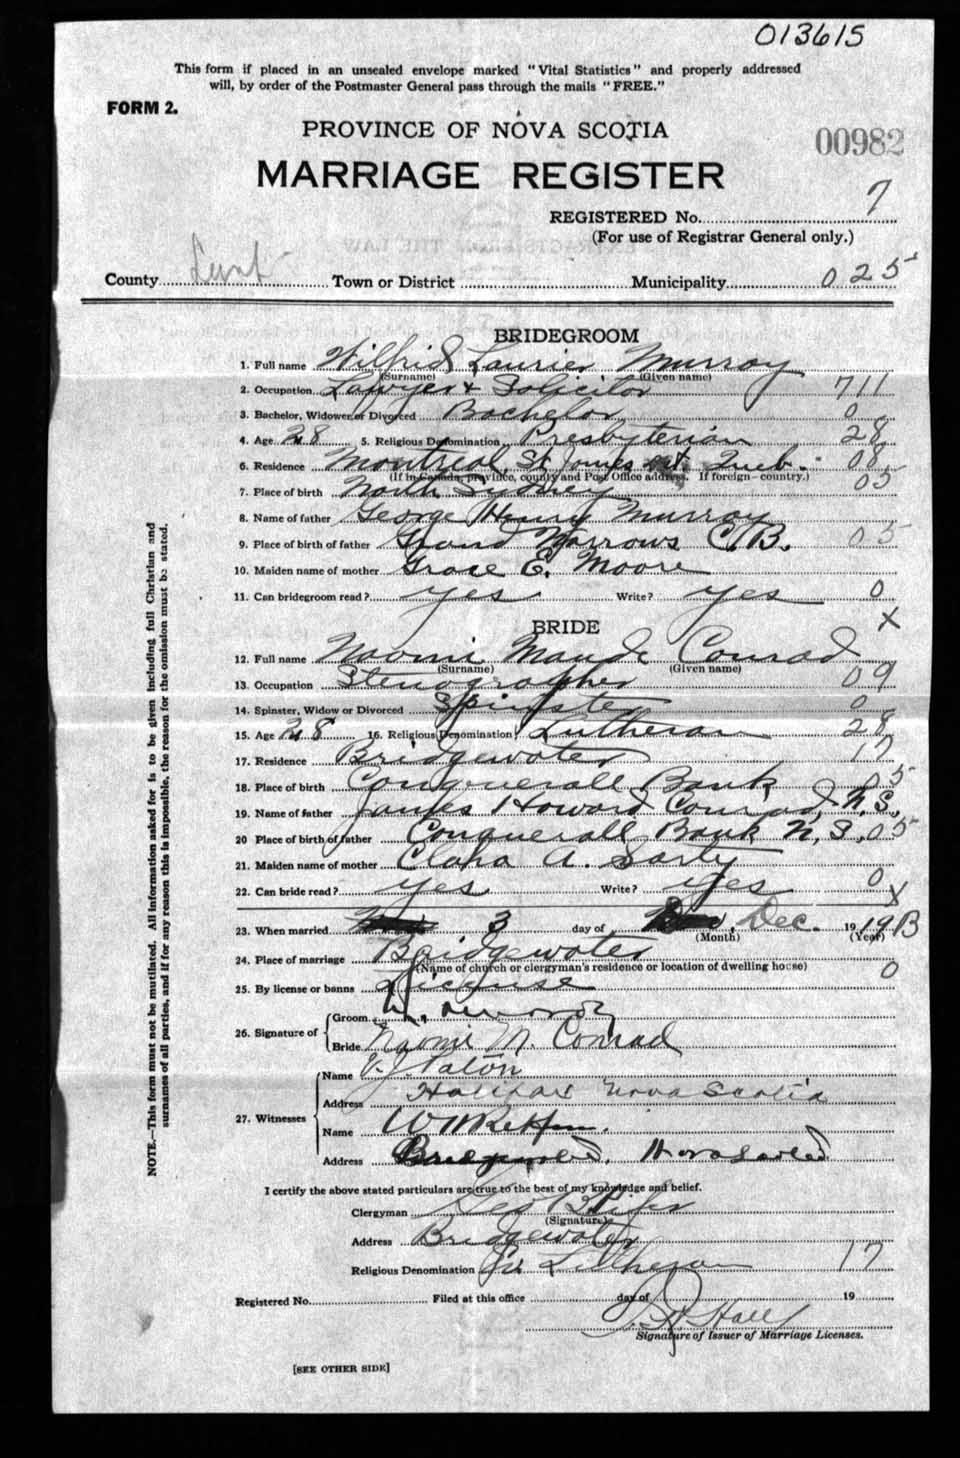 013615
This form if placed in an unsealed envelope marked "Vital Statistics" and properly addressed
will, by order of the Postmaster General pass through the mails "FREE."
FORM 2.
PROVINCE OF NOVA SCOTIA
00982
MARRIAGE REGISTER
REGISTERED No. 7
(For use of Registrar General only.)
County Lunt Town or District Municipality 025
BRIDEGROOM
1. Full name Wilfrid Laurier Murray
(Surname) (Given name)
2. Occupation Lawyer & Solicitor 711
3. Bachelor, Widower or Divorced Bachelor 0
4. Age 28 5. Religious Denomination Presbyterian 28
6. Residence Montreal, St. James Queb. 08
(If in Canada, province, county and Post Office address. If foreign—country.)
7. Place of birth North Sydney 05
8. Name of father George Henry Murray
9. Place of birth of father Grand Narrows C.B. 05
10. Maiden name of mother Grace E. Moore
11. Can bridegroom read? yes Write? yes 0
X
BRIDE
12. Full name Naomi Maude Conrad
(Surname) (Given name)
13. Occupation Stenographer 09
14. Spinster, Widow or Divorced Spinster 0
15. Age 28 16. Religious Denomination Lutheran 28
17. Residence Bridgewater 17
18. Place of birth Conquerall Bank 05
19. Name of father James Howard Conrad, N.S.
20 Place of birth of father Conquerall Bank N.S. 05
21. Maiden name of mother Clara A. Sarty
22. Can bride read? yes Write? yes 0
X
23. When married 3 day of Dec. 19 19B
(Month) (Year)
24. Place of marriage Bridgewater
(Name of church or clergyman's residence or location of dwelling house) 0
25. By license or banns License
26. Signature of Groom
Bride Naomi M. Conrad
27. Witnesses Name Paton
Address Halifax Nova Scotia
Name
Address
I certify the above stated particulars are true to the best of my knowledge and belief.
Clergyman Geo
(Signature)
Address Bridgewater
Religious Denomination Lutheran 17
Registered No. Filed at this office day of 19
Hall
Signature of Issuer of Marriage Licenses.
[SEE OTHER SIDE]
NOTE.—This form must not be mutilated. All information asked for is to be given including full Christian and
surnames of all parties, and if for any reason this is impossible, the reason for the omission must be stated.